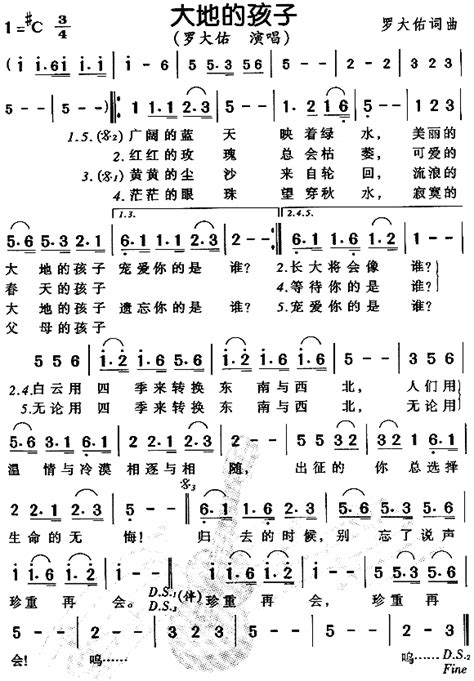 大地的孩子
1=#C 3/4 (罗大佑 演唱) 罗大佑词曲
(i i·6i i·i | i - 6 | 5 5·3 5 6 | i - - | 2 - - | 2·3 2 i |
5 - - | 5 - -) 1 1·1 2·3 | 5·6 5 - | 2· 2 1 6 | 5 - - | 1 2 3
1.5.(𝄋2)广阔的蓝 天 映着绿 水, 美丽的
2.红红的玫 瑰 总会枯 萎, 可爱的
3.(𝄋1)黄黄的尘 沙 来自轮 回, 流浪的
4.茫茫的眼 珠 望穿秋 水, 寂寞的
1.3. 2.4.5.
5·6 5·3 2·1 6·1 1·1 2·3 2 - - 6·1 6·6 1·6
大 地的孩子 宠爱你的是 谁? 2.长大将会像 谁?
春 天的孩子 4.等待你的是 谁?
大 地的孩子 遗忘你的是 谁? 5.宠爱你的是 谁?
父 母的孩子
5 5 6 i·2 i·6 5·6 i·6 i·2 i·6 5 - - 3 5 6
2.4.白云用 四 季来转换 东 南与西 北, 人们用
5.无论用 四 季来转换 东 南与西 北, 无论用
5·6 3·1 6·1 2·3 2·1 2·3 5 - - 5 5 3 2 3 2 1 6·1
温 情与冷漠 相逐与相 随, 出征的 你 总选择
𝄋3
2 2·1 2·3 1 - - 5 - - 5·5 6·1 6·2 3 - 5 2·3 2·3
生命的无 悔! 归 去的时候, 别 忘了说声
i i·6 i·2 i - - i i·6 i·2 i - 6 5 5·3 5·6
珍重再 会。 D.S.1(伴) 珍重再 会, 珍重再
D.S.3
5 - - 2 - - 2·3 2 1 5 - - 5 - -
会! 呜…… 呜…… D.S.2
Fine